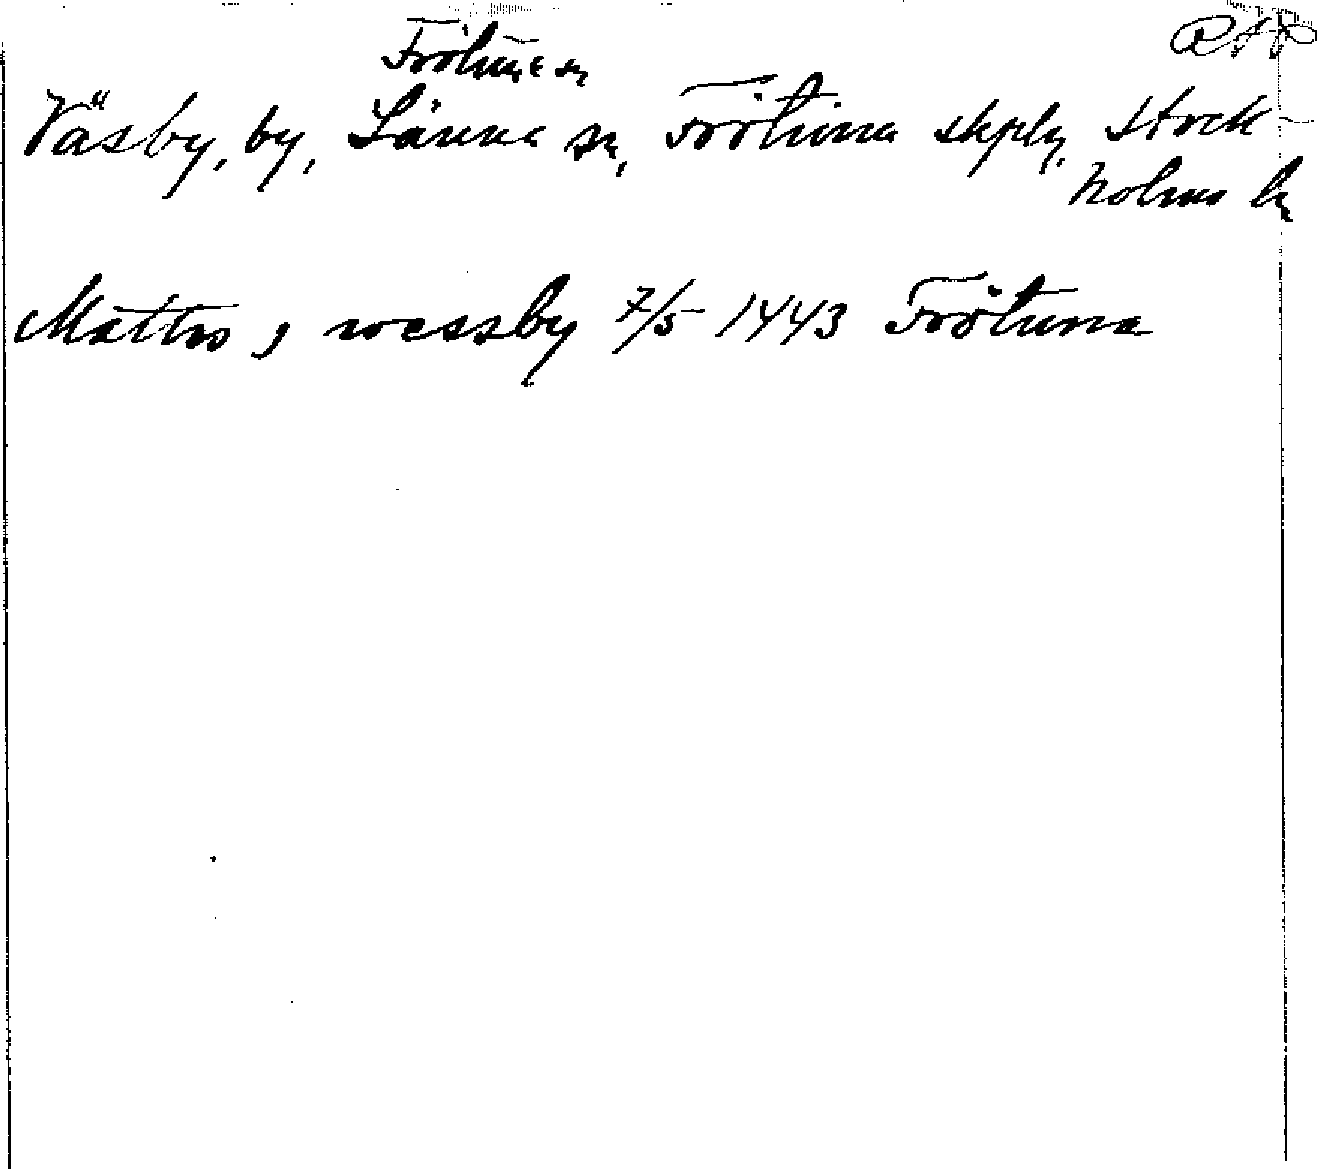 Frötuna sn
RAP
Väsby, by, Länna sn, Frötuna skplg, Stock-
holms ln
Mattis j wessby 7/5 1443 Frötuna